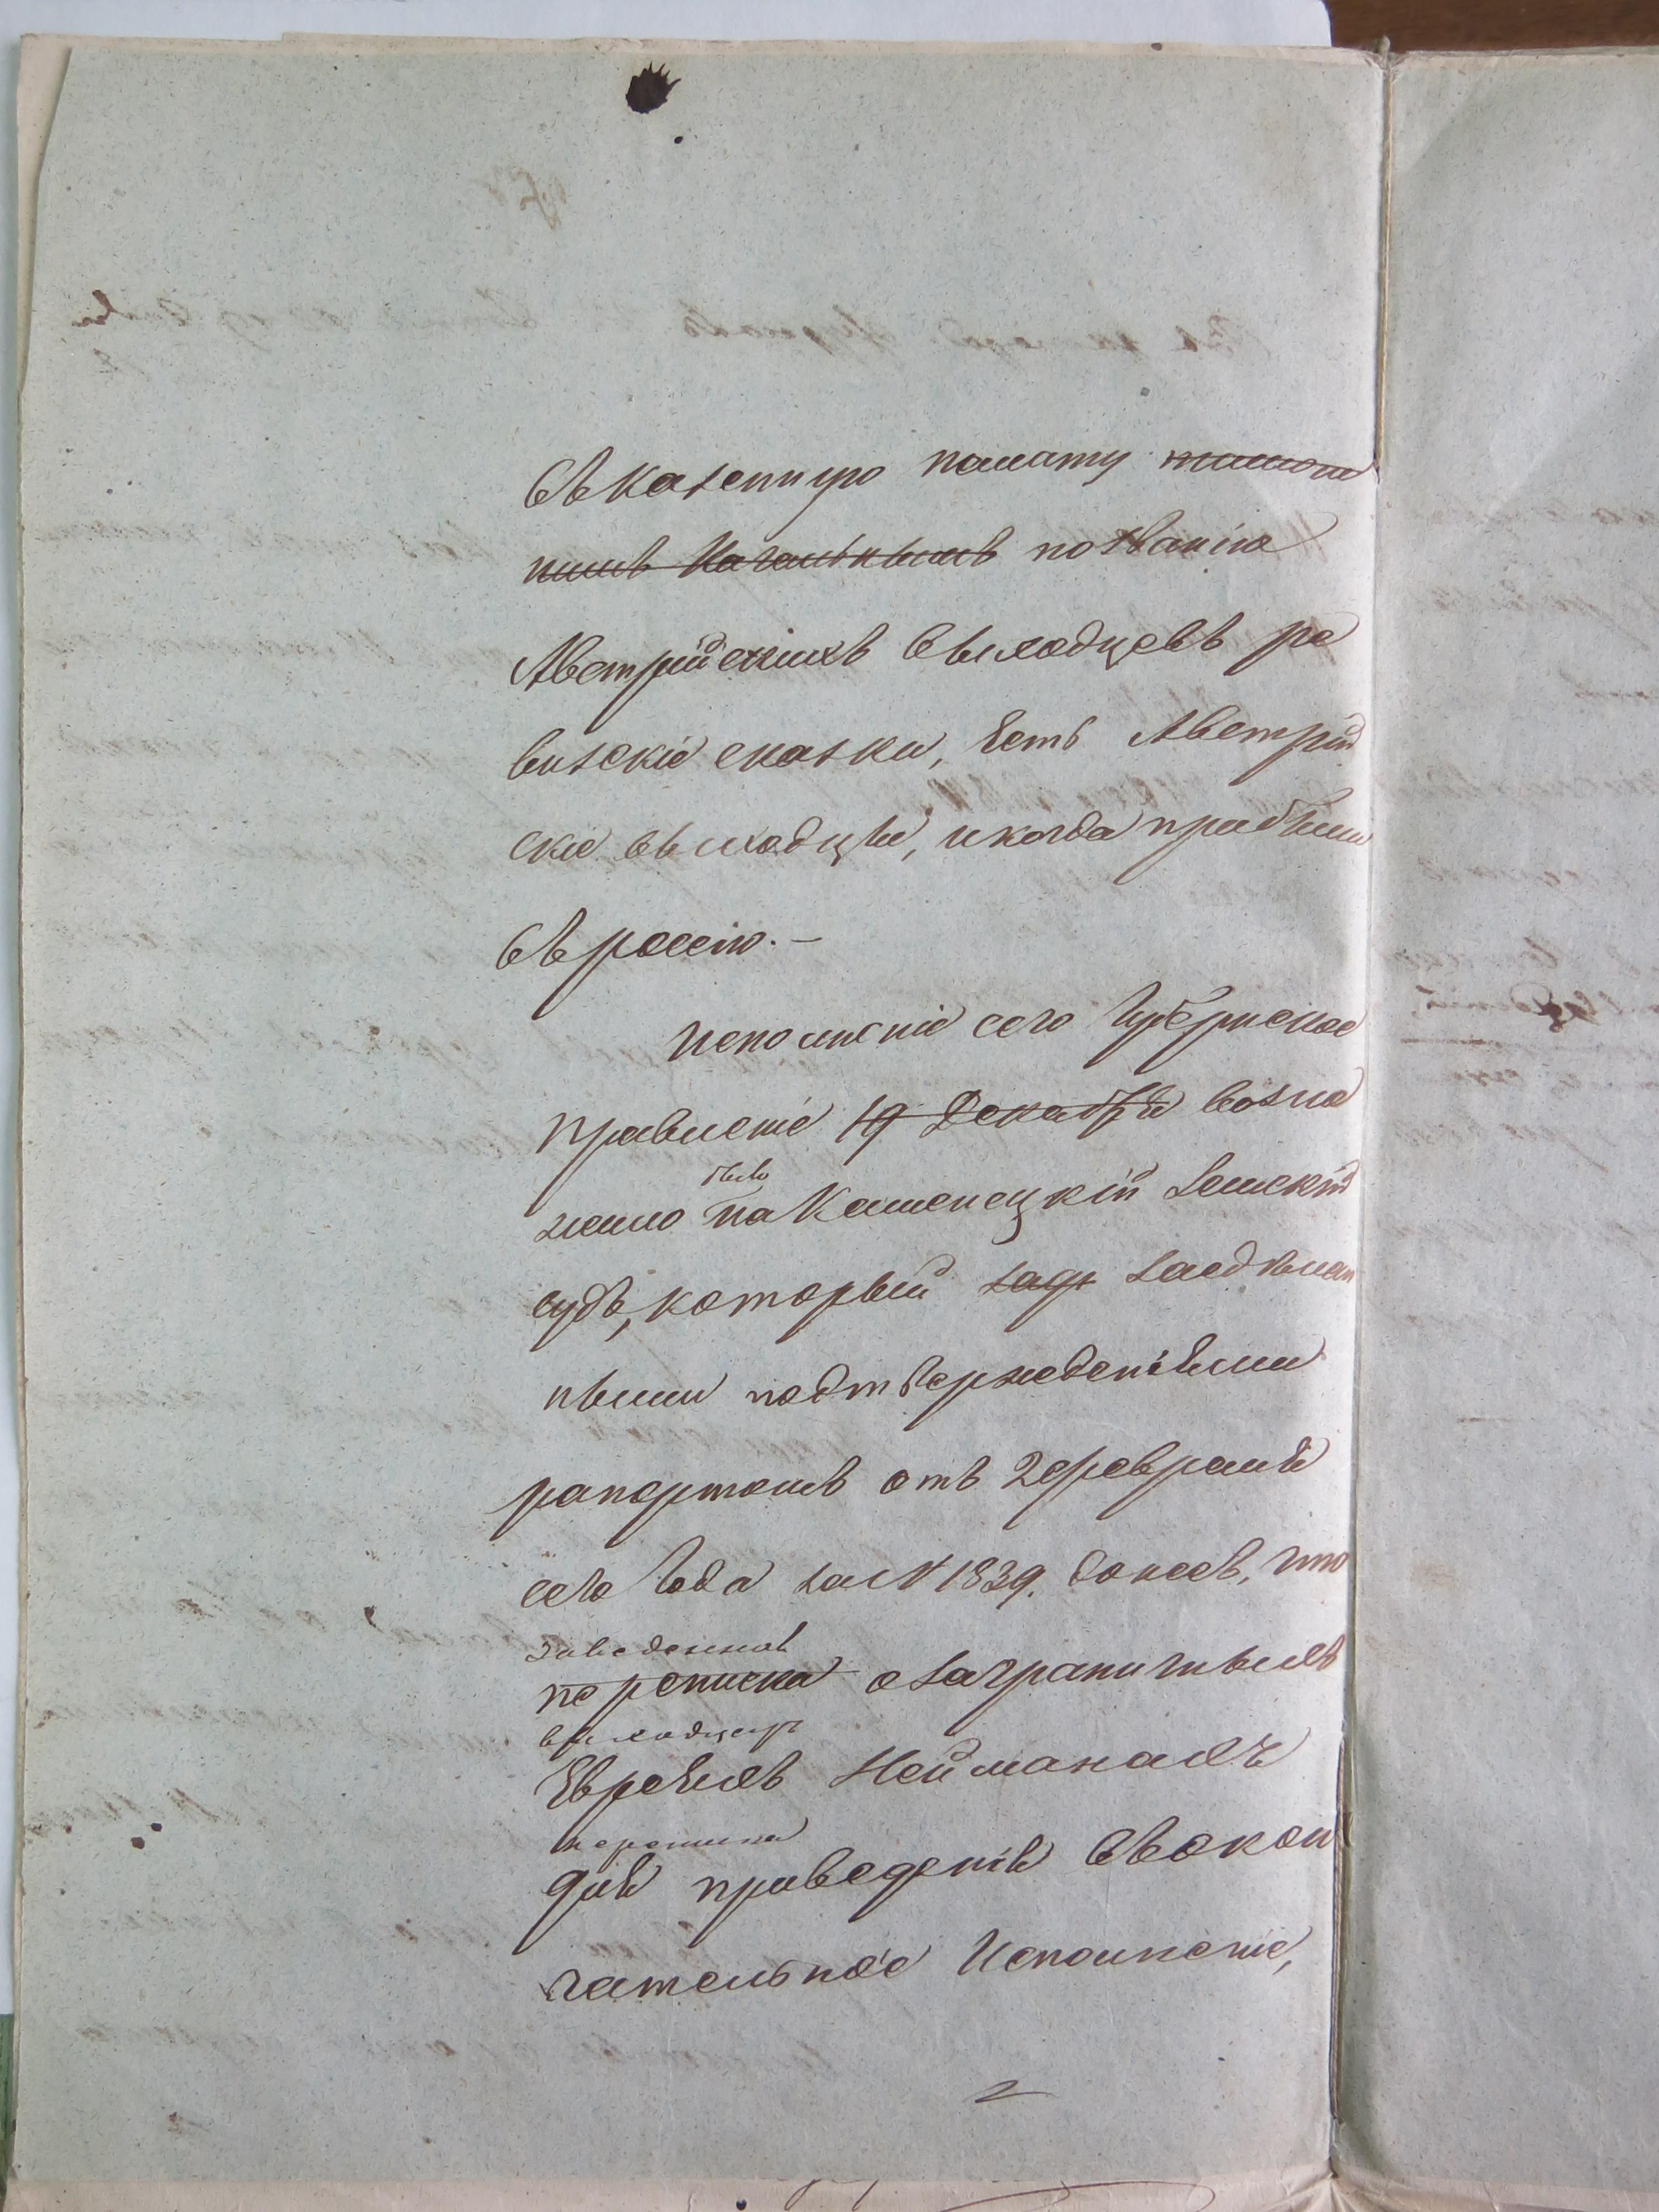 въ казенную палату
по званію
Австрійскихъ выходцевъ ре
визскіе сказки, есть Австрій
скіе выходцы, и когда прибыли
въ россію.—
исполненіе сего Губернское
правленіе 19 Декабря возла
было
жено на Каменецкій Земскій
судъ, который за съ двумя
подтвержденіями
рапортомъ отъ 2 февраля
сего года за N 1839. донесъ, что
заведенная
переписка о заграничныхъ
выходцахъ
Евреяхъ Нейманахъ
переписка
для приведенія въ окон
чательное Исполненіе,